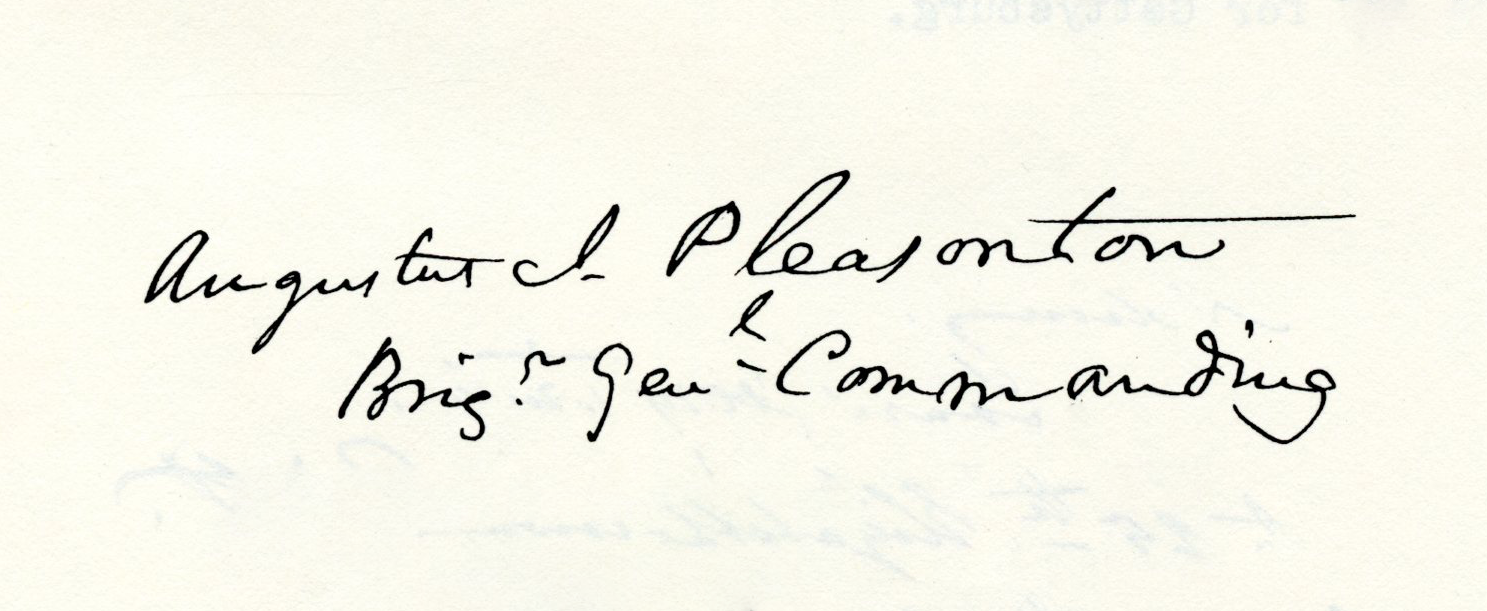 Augustus J. Pleasonton
Brigʳ. Genˡ. Commanding